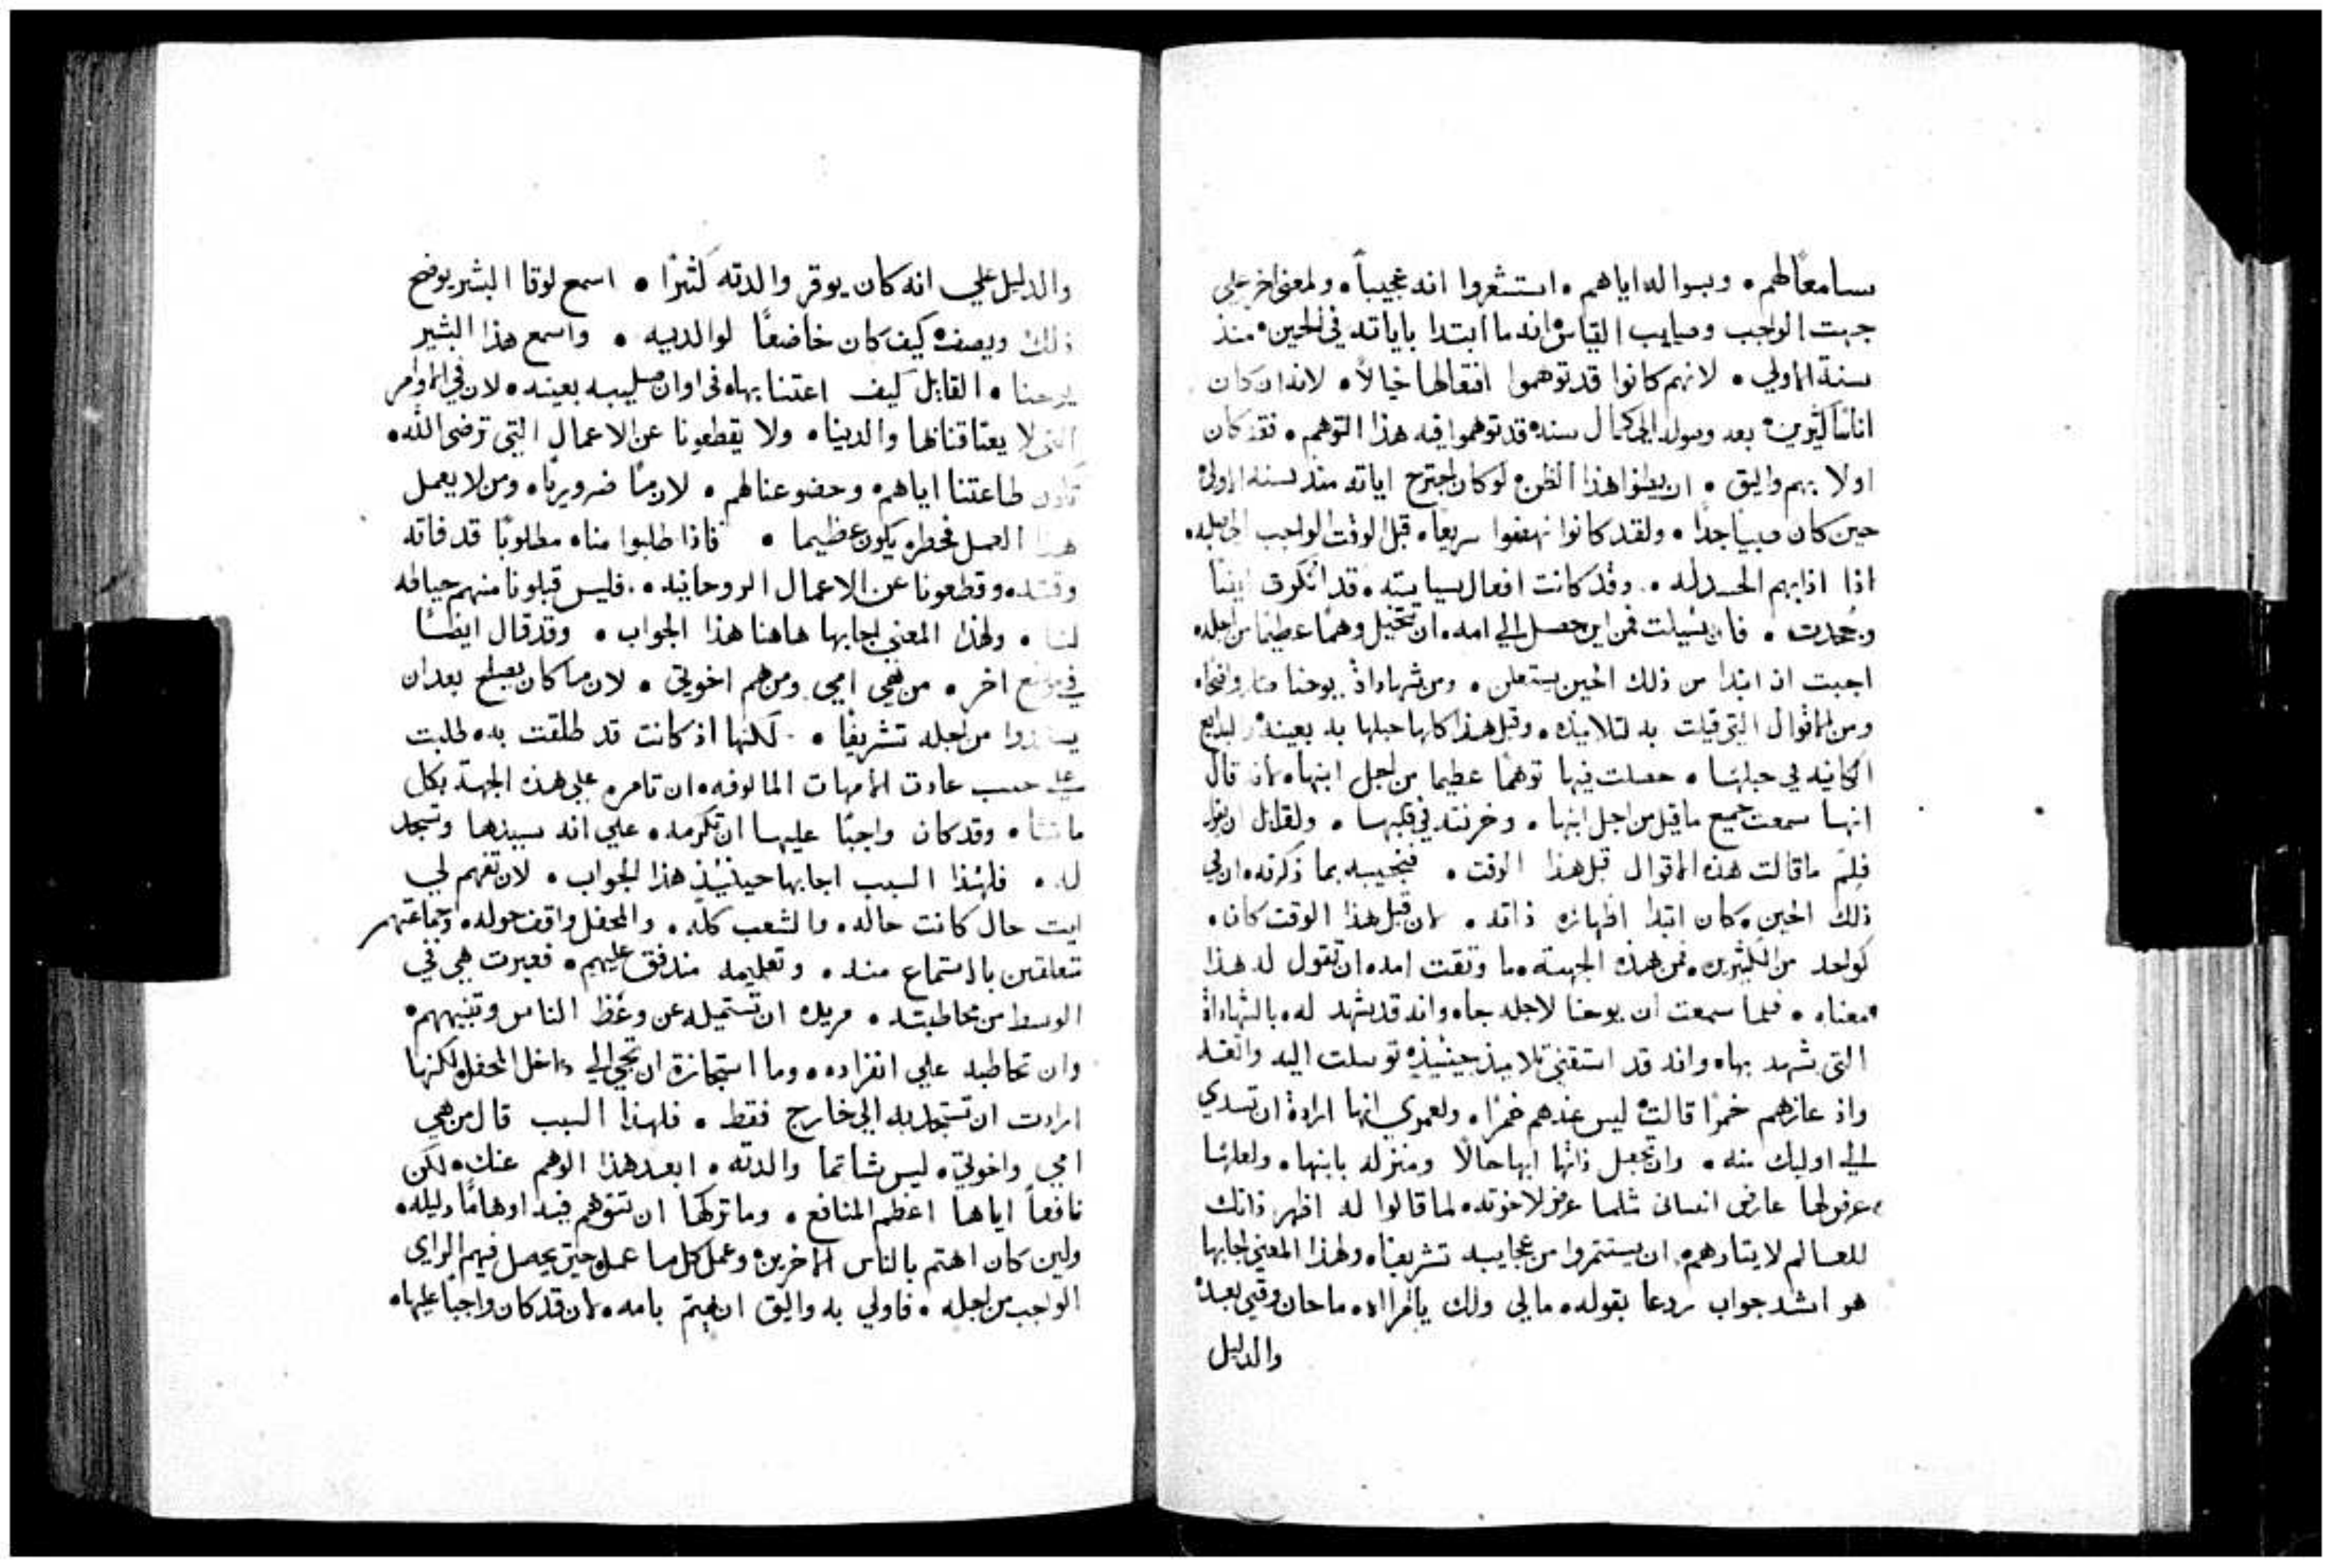 سامعًا لهم ٠ وبسواله اياهم ٠ استشعروا انه عجيبًا ٠ ولمعني اخر علي
جهت الواجب وصايب القياس انه ما ابتدا باياته في الحين ٠ منذ
سنة الاولي ٠ لانهم كانوا قد توهموا افعالها خيالًا ٠ لانه ان كان
اناسًا كثيرين ٠ بعد وصوله الي كمال سنه ٠ قد توهموا فيه هذا التوهم ٠ فقد كان
اولا بهم واليق ٠ ان يظنوا هذا الظن ٠ لو كان اجترح اياته منذ سنه الاولي
حين كان صبيا جدًا ٠ ولقد كانوا نهضوا سريعًا ٠ قبل الوقت الواجب الي صلبه ٠
اذا اذابهم الحسد له ٠ وقد كانت افعال سياسته ٠ قد انكرت ايضًا
وجحدت ٠ فان سُيلت فمن اين حصل الي امه ٠ ان تتخيل وهمًا عظيمًا من اجله
اجبت اذ ابتدا من ذلك الحين يستعلن ٠ ومن شهاداة يوحنا صار واضحًا ٠
ومن الاقوال التي قيلت به لتلاميذه ٠ وقبل هذا كلها حبلها به بعينه ٠ البدايع
الكاينه في حبلها ٠ حصلت فيها توهمًا عظيما من اجل ابنها ٠ لانه قال
انها سمعت جميع ما قيل من اجل ابنها ٠ وخزنته في قلبها ٠ ولقايل ان يقول
فلِمَ ما قالت هذه الاقوال قبل هذا الوقت ٠ فنجيبه بما ذكرته ٠ ان في
ذلك الحين ٠ كان ابتدا اظهاره ذاته ٠ لان قبل هذا الوقت كان ٠
كواحد من الكثيرين ٠ فمن هذه الجهة ٠ ما وثقت امه ٠ ان تقول له هذا
معناه ٠ فلما سمعت ان يوحنا لاجله جاء وانه قد يشهد له ٠ بالشهاداة
التي شهد بها ٠ وانه قد استقني تلاميذ حينيذٍ ٠ توسلت اليه واثقه
واذ عازهم خمرًا قالت ٠ ليس عندهم خمرًا ٠ ولعمري انها ارادة ان تسدي
الي اوليك منه ٠ وان تجعل ذاتها ابها حالًا ومنزله بابنها ٠ ولعلها
عرض لها عارض انساني مثلما عرض لاخوته ٠ لما قالوا له اظهر ذاتك
للعالم لايثارهم ٠ ان يستثمروا من عجايبه تشريفًا ٠ ولهذا المعني اجابها
هو اشد جواب ردعا بقوله ٠ مالي ولك يا امراه ٠ ما حان وقتي بعد ٠
والدليل
والدليل علي انه كان يوقر والدته كثيرًا ٠ اسمع لوقا البشير يوضح
ذلك ويصف ٠ كيف كان خاضعًا لوالديه ٠ واسمع هذا البشير
يوحنا ٠ القايل كيف اعتنا بها ٠ في اوان صليبه بعينه ٠ لان في الاوامر
التي لا يعتاقنا لها والدينا ٠ ولا يقطعونا عن الاعمال التي ترضي الله ٠
تكون طاعتنا اياهم ٠ وخضوعنا لهم ٠ لازمًا ضروريًا ٠ ومن لا يعمل
هذا العمل فخطره يكون عظيما ٠ فاذا طلبوا منا ٠ مطلوبًا قد فاته
وقته ٠ وقطعونا عن الاعمال الروحانيه ٠ فليس قبلونا منهم حياطه
لنا ٠ ولهذا المعني اجابها هاهنا هذا الجواب ٠ وقد قال ايضًا
في موضع اخر ٠ من هي امي ومن هم اخوتي ٠ لان ما كان يصلح بعد ان
من اجله تشريفًا ٠ لكنها اذ كانت قد طلقت به ٠ طلبت
علي حسب عادت الامهات المالوفه ٠ ان تامره علي هذه الجهة بكل
ما تشا ٠ وقد كان واجبًا عليها ان تكرمه ٠ علي انه سيدها وتسجد
له ٠ فلهذا السبب اجابها حينيذٍ هذا الجواب ٠ لان تفهم لي
ايت حال كانت حاله ٠ والشعب كله ٠ والمحفل واقف حوله ٠ وجماعتهم
متعلقين بالاستماع منه ٠ وتعليمه مندفق عليهم ٠ فعبرت هي في
الوسط من مخاطبته ٠ مريده ان تستميله عن وعظ الناس وتنبيههم ٠
وان تخاطبه علي انفراده ٠ وما استجازة ان تجي الي داخل المحفل ٠ لكنها
ارادت ان تستجذبه الي خارج فقط ٠ فلهذا السبب قال من هي
امي واخوتي ٠ ليس شاتما والدته ٠ ابعد هذا الوهم عنك ٠ لكن
نافعًا اياها اعظم المنافع ٠ وما تركها ان تتوهم فيه اوهامًا ذليله ٠
ولين كان اهتم بالناس الاخرين ٠ وعمل كل ما عمله حتي يحصل فيهم الراي
الواجب من اجله ٠ فاولي به واليق ان يهتم بامه ٠ لان قد كان واجبًا عليها ٠